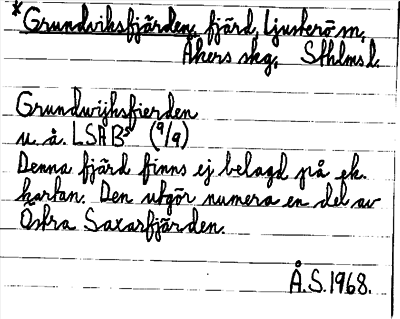 *Grundviksfjärden, fjärd, Ljusterö sn,
Åkers skg, Sthlms l.
Grundwijksfierden
u. å. LSA B⁵ (9/9)
Denna fjärd finns ej belagd på ek.
kartan. Den utgör numera en del av
Östra Saxarfjärden.
Å.S.1968.